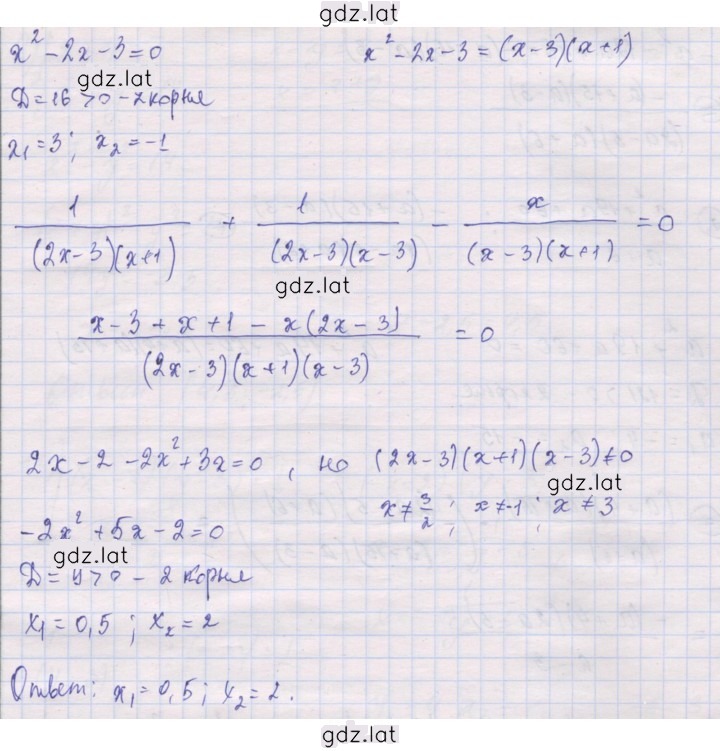 gdz.lat
x² - 2x - 3 = 0 x² - 2x - 3 = (x - 3)(x + 1)
gdz.lat
D = 16 > 0 - 2 корня
x₁ = 3; x₂ = -1
1/((2x - 3)(x + 1)) + 1/((2x - 3)(x - 3)) - x/((x - 3)(x + 1)) = 0
gdz.lat
(x - 3 + x + 1 - x(2x - 3))/((2x - 3)(x + 1)(x - 3)) = 0
2x - 2 - 2x² + 3x = 0, но (2x - 3)(x + 1)(x - 3) ≠ 0
gdz.lat
x ≠ 3/2; x ≠ -1; x ≠ 3
-2x² + 5x - 2 = 0
gdz.lat
D = 9 > 0 - 2 корня
x₁ = 0,5; x₂ = 2
Ответ: x₁ = 0,5; x₂ = 2.
gdz.lat
gdz.lat